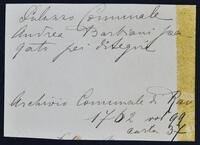 Palazzo Comunale
Andrea Barbiani pa
gato pei disegni
Archivio Comunale di Rav
1762 vol 99
carta 37